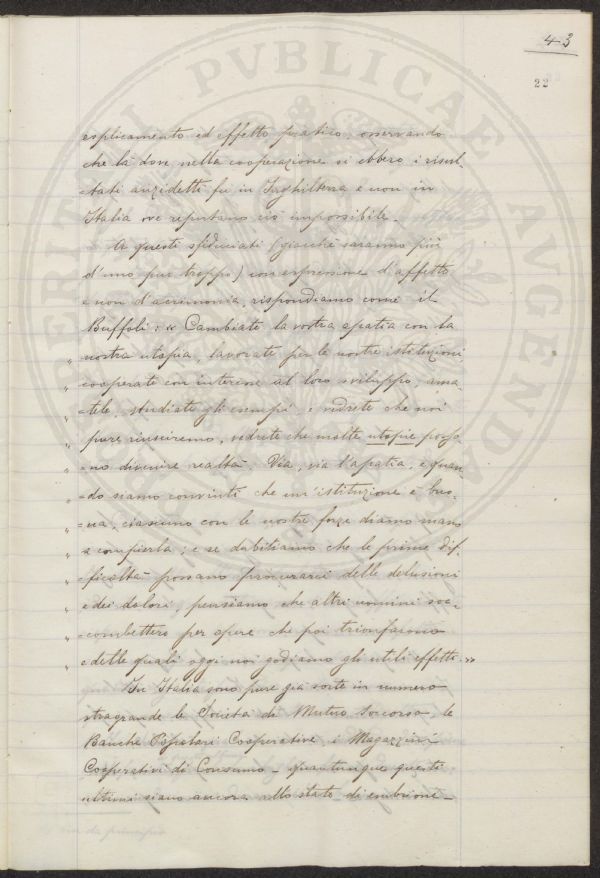 43
22
PROSPERITATI PVBLICAE AVGENDAE
esplicamento ed effetto pratico, osservando
che là dove nella cooperazione si ebbero i risul-
-tati anzidetti fu in Inghilterra e non in
Italia ove reputano ciò impossibile.
A questi sfiduciati (giacchè saranno più
d'uno pur troppo) con espressione d'affetto
e non d'acrimonia, rispondiamo come il
Buffoli: « Cambiate la vostra apatia con la
" nostra utopia, lavorate per le nostre istituzioni
" cooperate con interesse al loro sviluppo, ama-
" -tele, studiate gli esempi, e vedrete che noi
" pure riusciremo, vedrete che molte utopie posso-
" -no divenire realtà. Via, via l'apatia, e quan-
" -do siamo convinti che un'istituzione è buo-
" -na, ciascuno con le nostre forze diamo mano
" a compierla; e se dubitiamo che le prime dif-
" -ficoltà possano procurarci delle delusioni
" e dei dolori, pensiamo che altri uomini soc-
" -combettero per opere che poi trionfarono
" e delle quali oggi noi godiamo gli utili effetti. »
In Italia sono pure già sorte in numero
stragrande le Società di Mutuo Soccorso, le
Banche Popolari Cooperative, i Magazzini
Cooperativi di Consumo - quantunque questi
ultimi siano ancora allo stato di embrione -